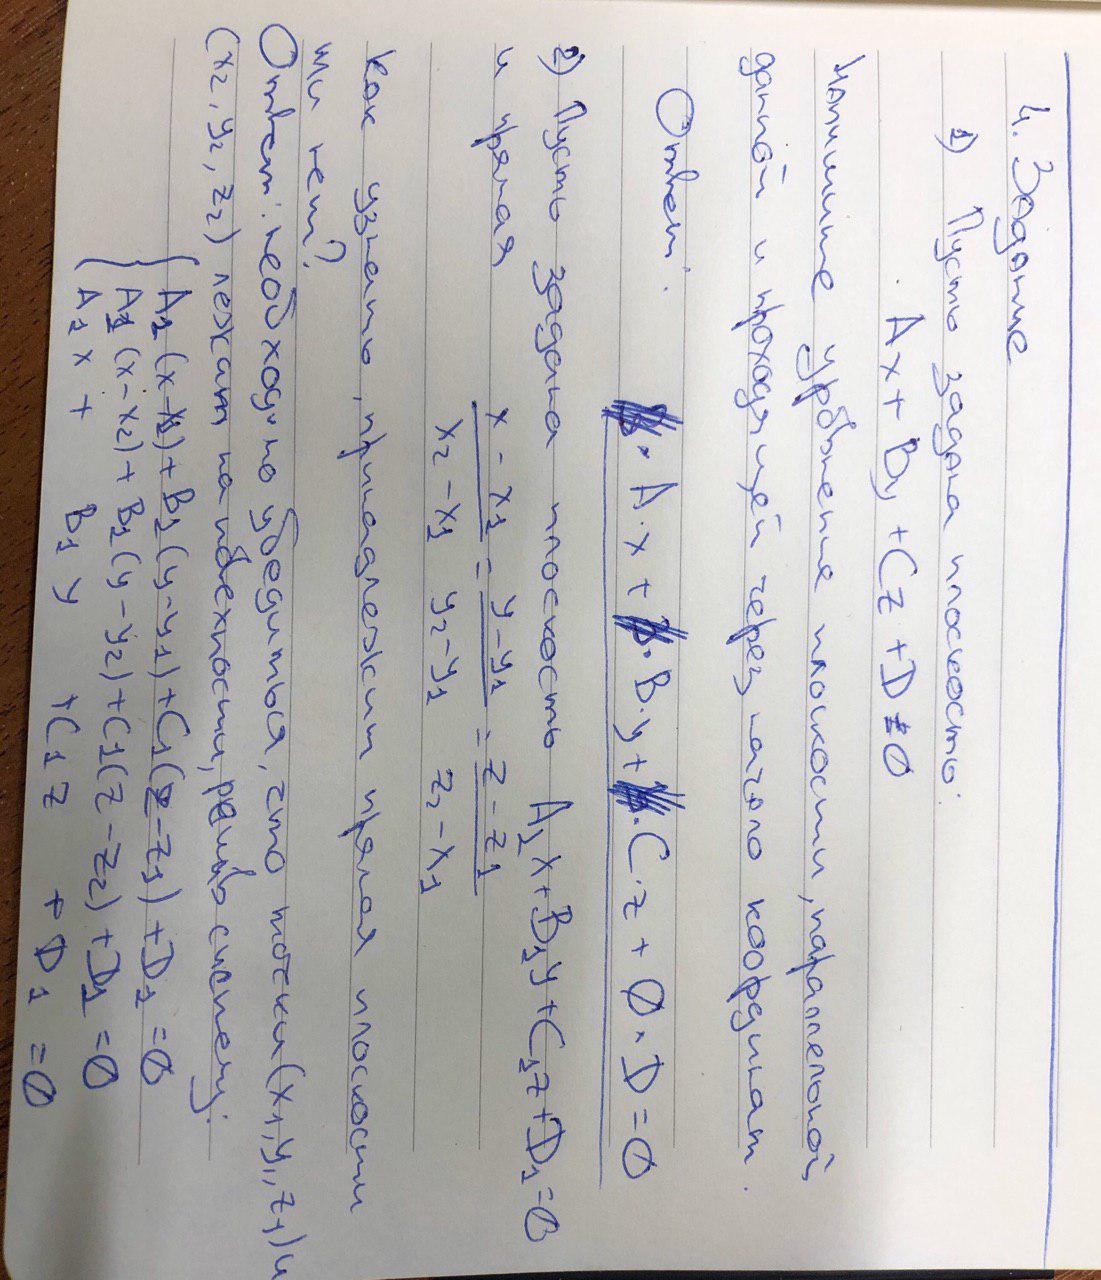 4. Задание
1) Пусть задана плоскость:
Ax + By + Cz + D = 0
Напишите уравнение плоскости, параллельной
данной и проходящей через начало координат.
Ответ: A·x + B·y + C·z + 0·D = 0
2) Пусть задана плоскость A₁x + B₁y + C₁z + D₁ = 0
и прямая x - x₁ / x₂ - x₁ = y - y₁ / y₂ - y₁ = z - z₁ / z₂ - x₁
Как узнать, принадлежит прямая плоскости
или нет?
Ответ: необходимо убедиться, что точки (x₁, y₁, z₁) и
(x₂, y₂, z₂) лежат на поверхности, решив систему:
{ A₁(x - x₁) + B₁(y - y₁) + C₁(z - z₁) + D₁ = 0
A₁(x - x₂) + B₁(y - y₂) + C₁(z - z₂) + D₁ = 0
A₁x + B₁y + C₁z + D₁ = 0